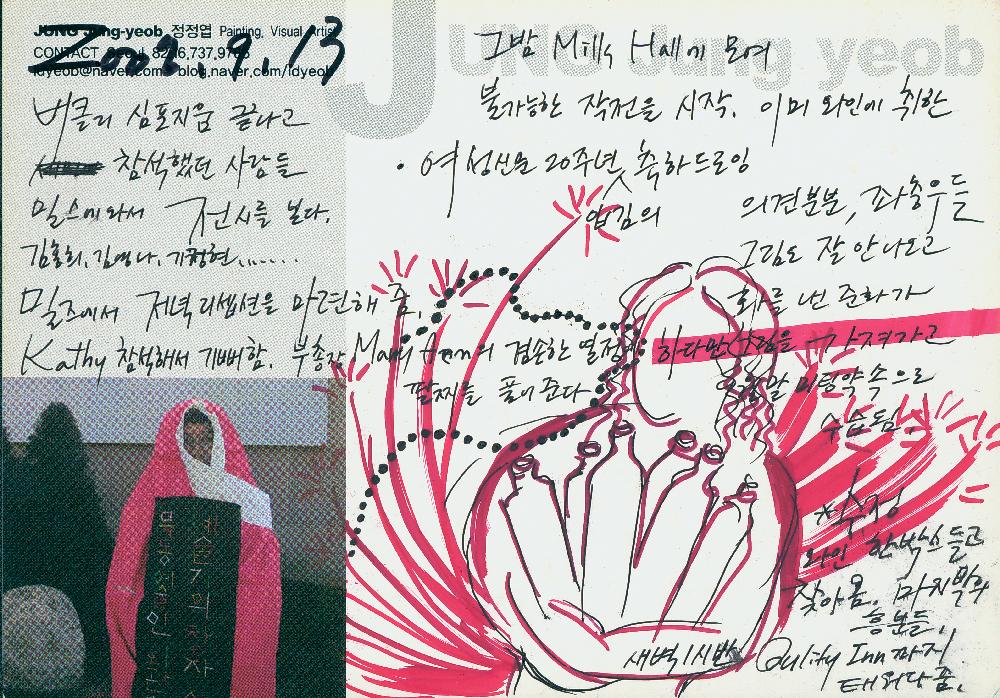 JUNG Jung-yeob
JUNG Jung-yeob 정정엽 Painting, Visual Artist
CONTACT Seoul
idyeob@naver.com blog.naver.com/idyeob
2006. 9. 13
버클리 심포지움 끝나고
참석했던 사람들
밀스에 와서 전시를 보다.
김홍희, 김영나,
밀즈에서 저녁 리셉션을 마련해 줌.
Kathy 참석해서 기뻐함. 부총장 Mary Ann의 겸손한 열정에
팔찌를 풀어준다
그밤 Mills Hall에 모여
불가능한 작전을 시작. 이미 와인에 취한
· 여성신문 20주년 축하드로잉
의견분분, 좌충우돌
그림도 잘 안나오고
화를 낸 준화가
하다만 그림을 가져가고
미팅약속으로
수습됨.
와인 한박스 들고
찾아옴. 마지막
흥분들.
새벽 1시반 Quality Inn까지
태워다 줌.